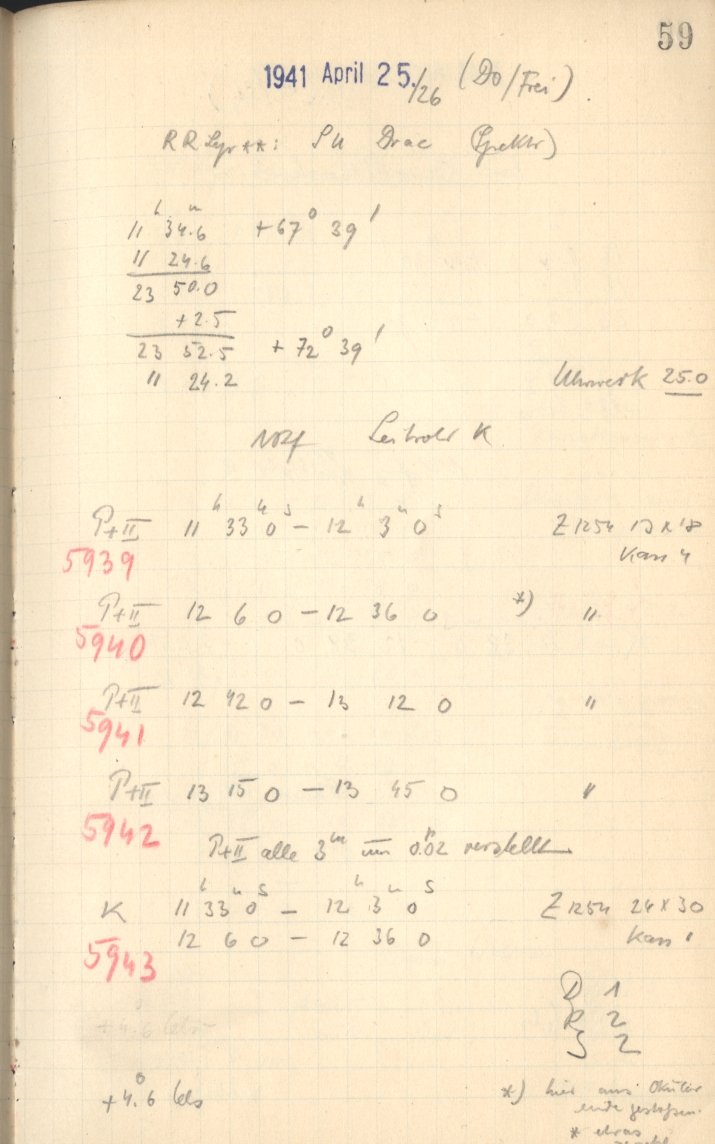 59
1941 April 25./26 (Do/Frei)
RR Lyr **: SU Drac (Spektr)
11h 34m.6 +67° 39'
11 24.6
23 50.0
+2.5
23 52.5 +72° 39'
11 24.2
Uhrwerk 25.0
Leitrohr K
P+II 11h 33m 0s – 12h 3m 0s Z 1254 13x18
5939 Kass 4
P+II 12 6 0 – 12 36 0 *) "
5940
P+II 12 42 0 – 13 12 0 "
5941
P+II 13 15 0 – 13 45 0 "
5942
P+II alle 3m um 0.02 verstellt
K 11h 33m 0s – 12h 3m 0s Z 1254 24x30
12 6 0 – 12 36 0 Kass 1
5943
D 1
R 2
S 2
+4°.6 Cels
+4°.6 Cels *) hier ans Okular
ende gestoßen.
* etwas